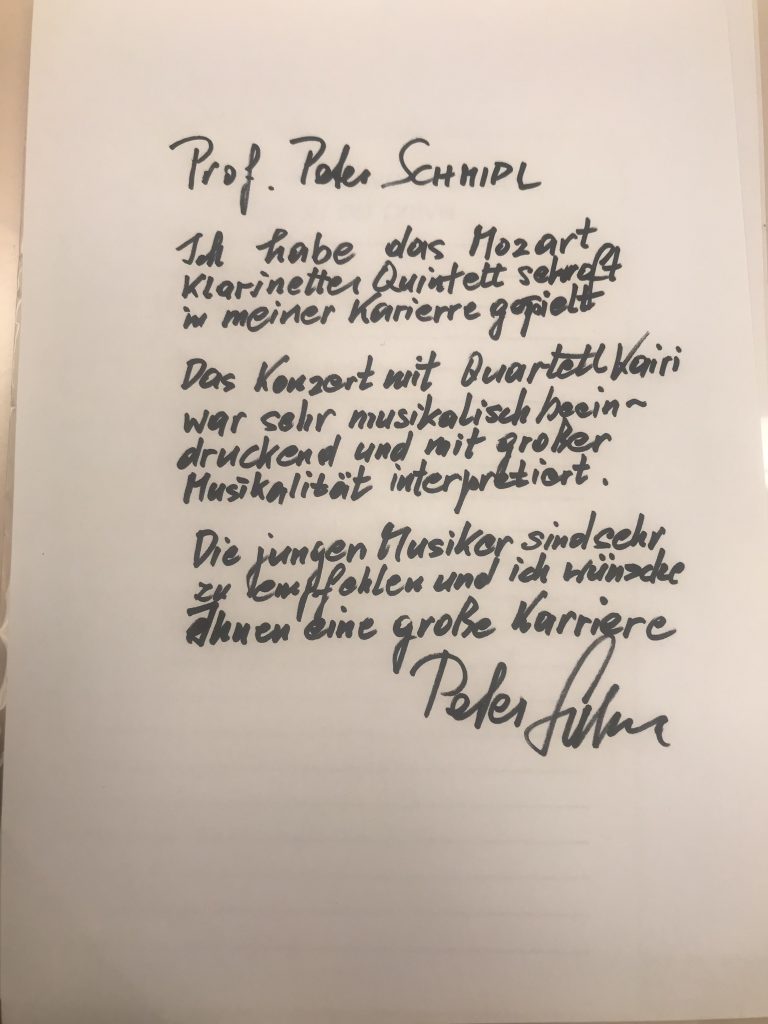 Prof. Peter SCHMIDL
Ich habe das Mozart
Klarinetten Quintett sehr oft
in meiner Karierre gespielt
Das Konzert mit Quartett Kairi
war sehr musikalisch beein-
druckend und mit großer
Musikalität interpretiert.
Die jungen Musiker sind sehr
zu empfehlen und ich wünsche
Ihnen eine große Karriere
Peter